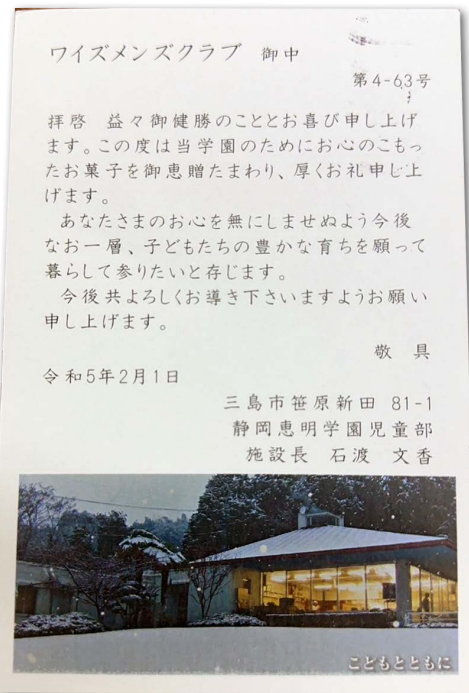 ワイズメンズクラブ 御中
第4-63号
拝啓 益々御健勝のこととお喜び申し上げ
ます。この度は当学園のためにお心のこもっ
たお菓子を御恵贈たまわり、厚くお礼申し上
げます。
あなたさまのお心を無にしませぬよう今後
なお一層、子どもたちの豊かな育ちを願って
暮らして参りたいと存じます。
今後共よろしくお導き下さいますようお願い
申し上げます。
敬 具
令和5年2月1日
三島市笹原新田 81-1
静岡恵明学園児童部
施設長 石渡 文香
こどもとともに